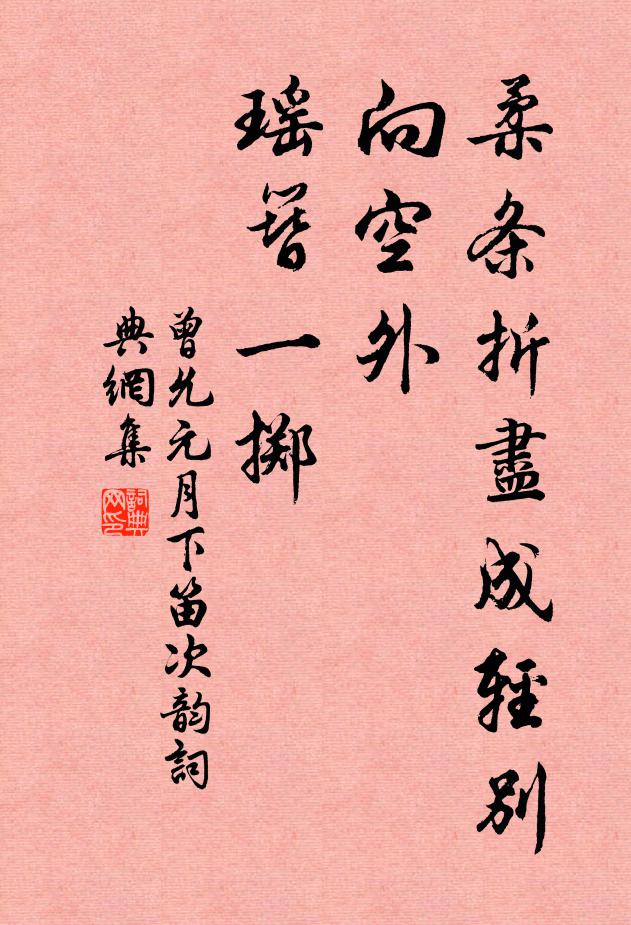 柔条折盡成輕別
向空外
瑤簪一擲
曾允元月下笛次韵詞
典網集
詞典
网印